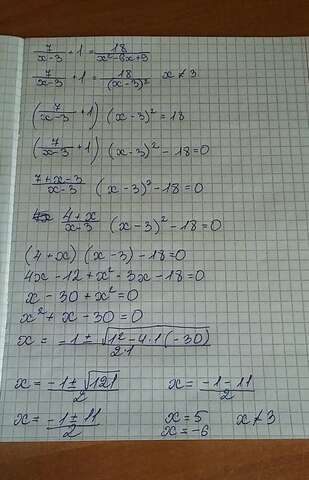 7/(x-3) + 1 = 18/(x²-6x+9)
7/(x-3) + 1 = 18/(x-3)² x ≠ 3
(7/(x-3) + 1) (x-3)² = 18
(7/(x-3) + 1) (x-3)² - 18 = 0
(7+x-3)/(x-3) (x-3)² - 18 = 0
(4+x)/(x-3) (x-3)² - 18 = 0
(4+x) (x-3) - 18 = 0
4x - 12 + x² - 3x - 18 = 0
x - 30 + x² = 0
x² + x - 30 = 0
x = (-1 ± √(1² - 4·1(-30)))/(2·1)
x = (-1 ± √121)/2 x = (-1 - 11)/2
x = (-1 ± 11)/2 x = 5 x ≠ 3
x = -6